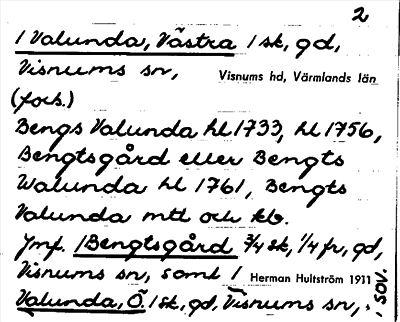 2
1 Valunda, Västra 1 sk, gd,
Visnums sn, Visnums hd, Värmlands län
(forts.)
Bengs Valunda hl 1733, hl 1756,
Bengtsgård eller Bengts
Walunda hl 1761, Bengts
Valunda mtl och kb.
Jmf. 1 Bengtsgård 3/4 sk, 1/4 fr, gd,
Visnums sn, samt 1 Herman Hultström 1911
Valunda, Ö. 1 sk, gd, Visnums sn,
SOV.